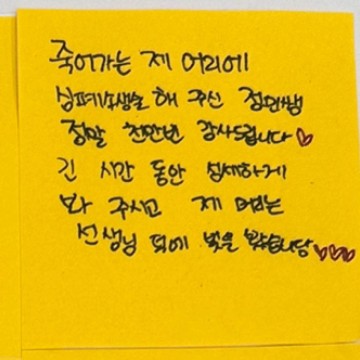 죽어가는 제 머리에
심폐소생술 해 주신 정민쌤
정말 천만번 감사드립니다♥
긴 시간 동안 섬세하게
봐 주시고 제 머리는
선생님 덕에 빛을 봤습니당♥♥♥